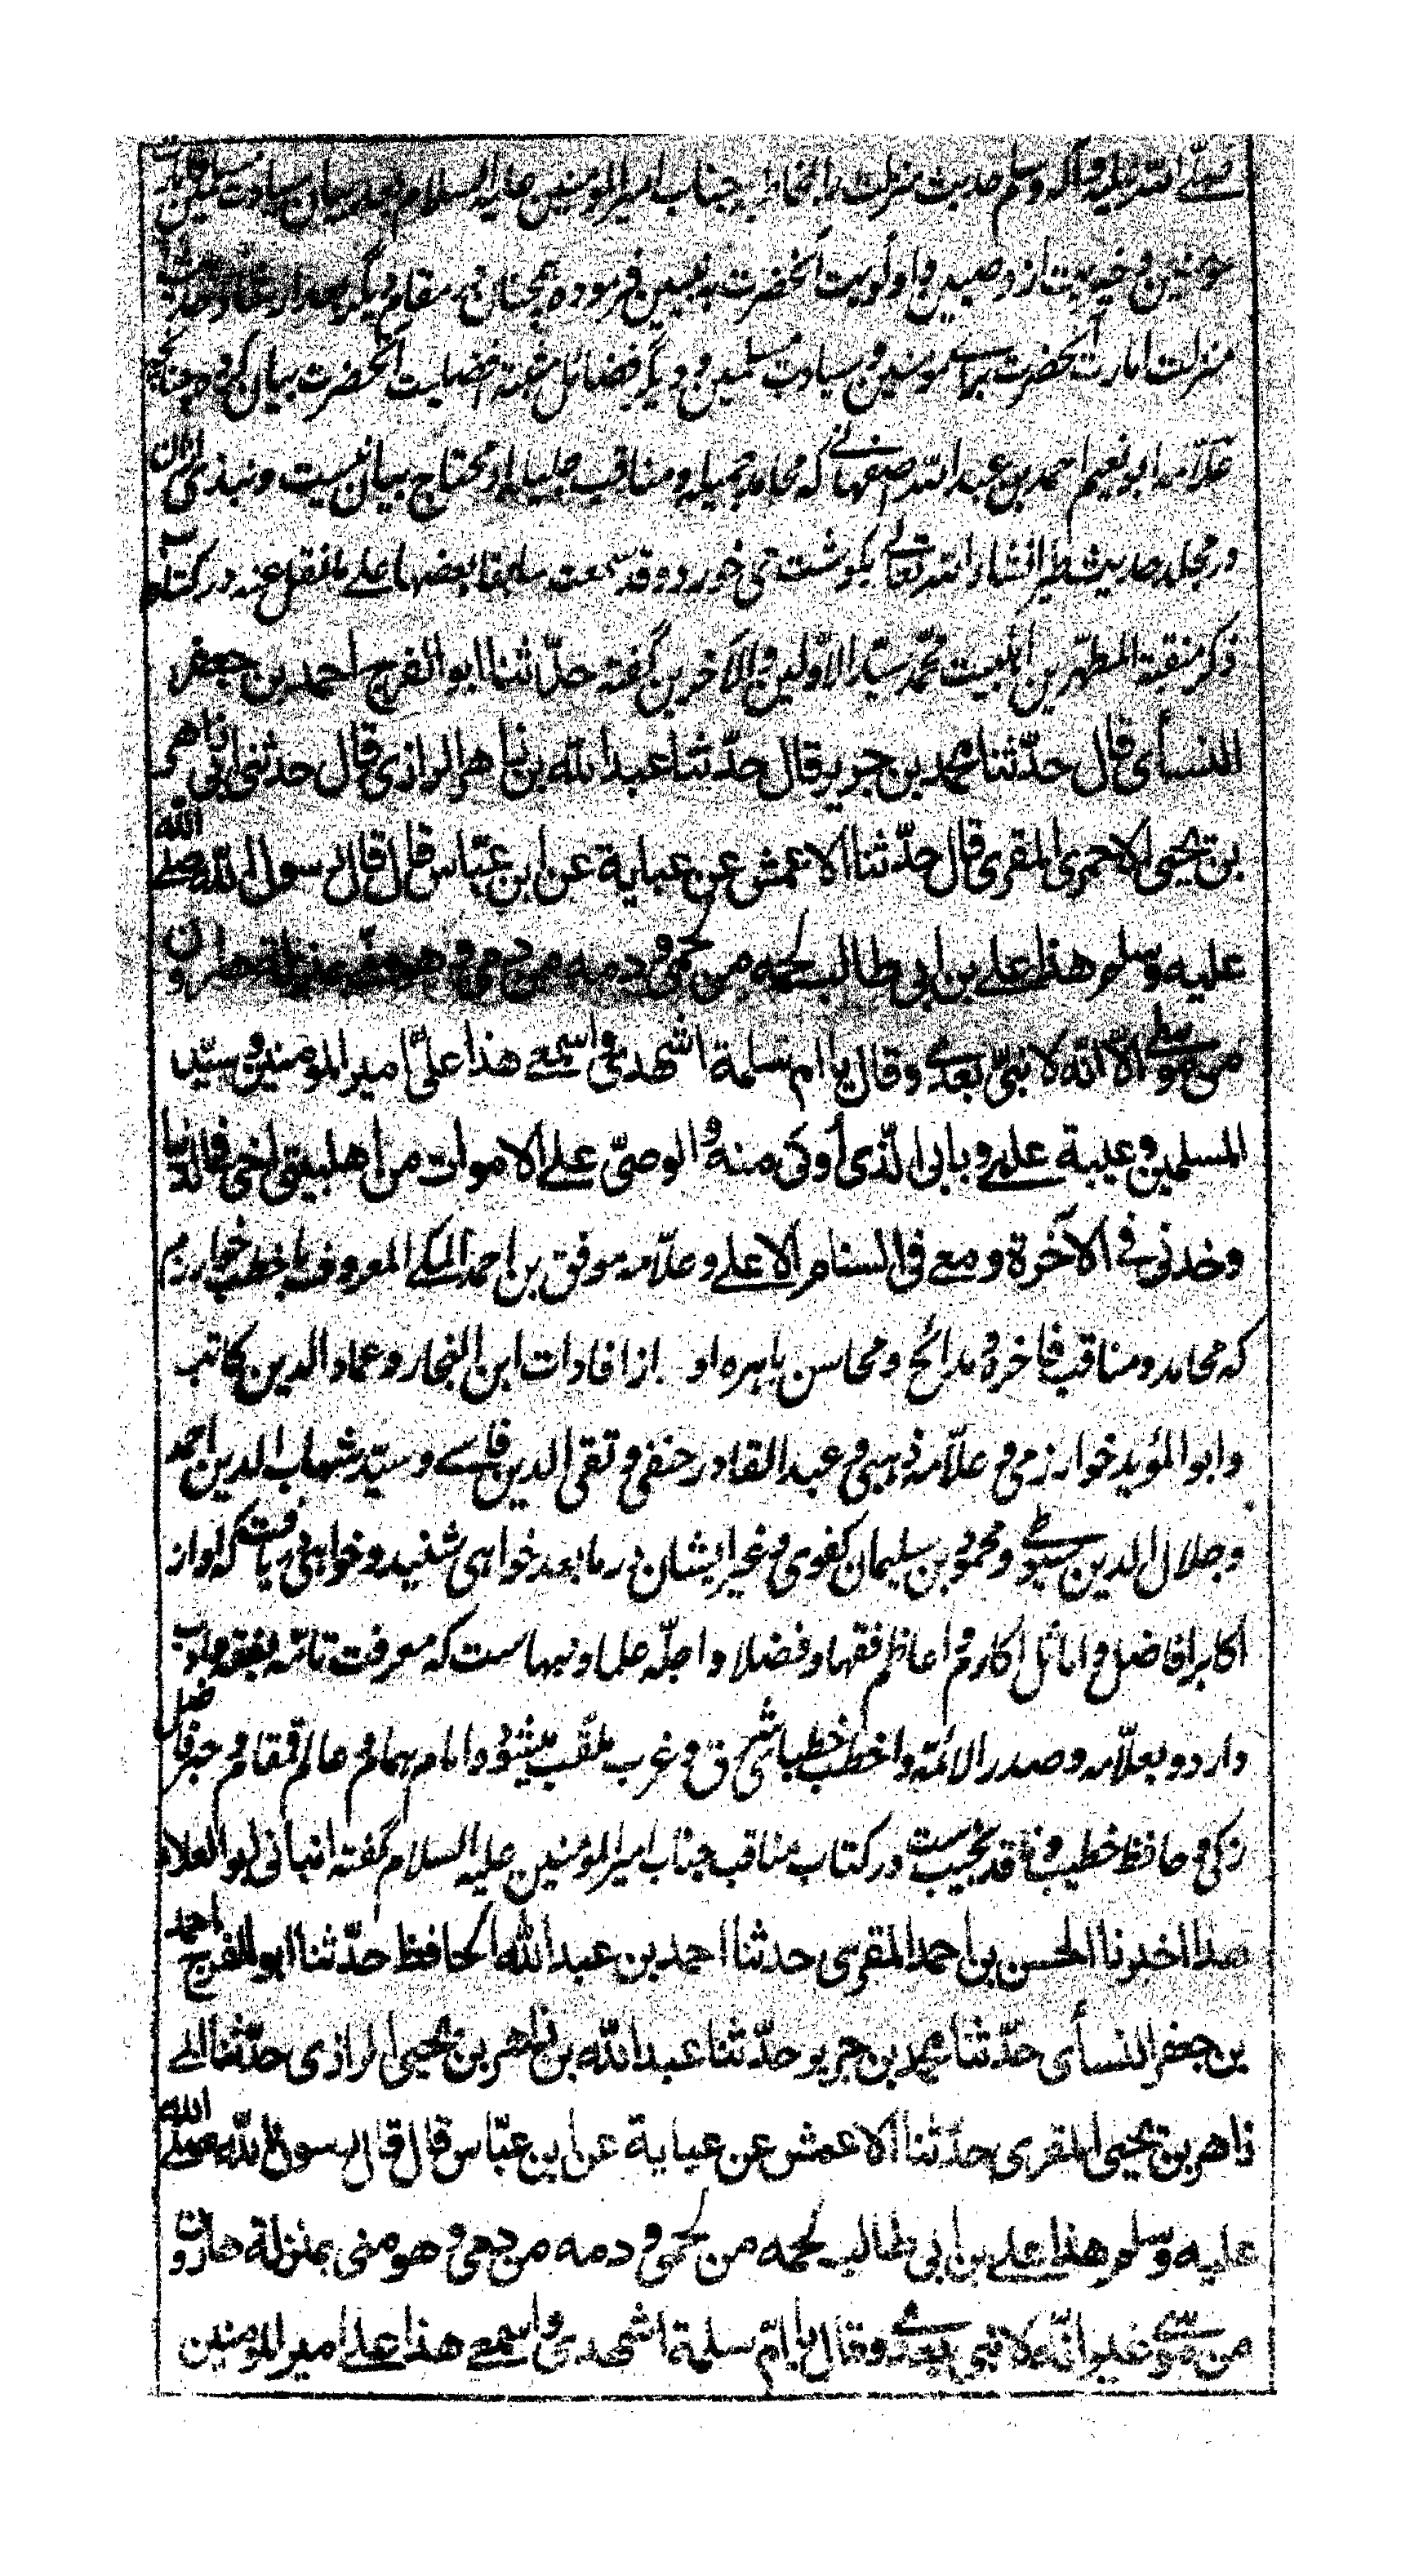 صلّے اللہ علیہ وآلہ وسلم حدیث منزلت را بخاطبہ جناب امیر المومنین علیہ السلام بعد بیان سیادت مسلمین
مومنین و خیریت از وصیین و اولویت آنحضرت به نبیین فرموده همچنان در مقام دیگر بعد ارشاد حدیث
منزلت امارت آنحضرت براے مومنین و سیادت مسلمین و دیگر فضائل مثبتہ افضلیت آنحضرت بیان کرده چنانچہ
علّامہ ابو نعیم احمد بن عبد اللہ اصفہانے کہ محامد جمیلہ و مناقب جلیلہ او محتاج بیان نیست و نبذی ازان
در مجلد حدیث طیر انشاء اللہ تعالے بگوشت می خورد و قد سمعت سابقا بعضہا علے ما نقل عنہ در کتاب
ذکر منقبة المطہرین اہلبیت محمّد سیّد الاوّلین والآخرین گفتہ حدّثنا ابو الفرج احمد بن جعفر
النسأی قال حدّثنا محمد بن جریر قال حدّثنا عبد الله بن زاهر الرازی قال حدثنی ابی زاهر
بن یحیی الاحمری المقری قال حدّثنا الاعمش عن عبایة عن ابن عبّاس قال قال رسول الله صلے الله
علیه وسلم هذا علے بن ابی طالب لحمه من لحمی و دمه من دمی و هو منّی بمنزلة هارون
من موسے الّا انّه لا نبیّ بعدے وقال یا ام سلمة اشهدی واسمعے هذا علیّ امیر المومنین و سیّد
المسلمین و عیبة علمے و بابی الّذی أوتی منه والوصیّ علے الاموات من اهلبیتی اخی فی الدّنیا
وخدنی فی الآخرة و معے فی السنام الاعلے وعلّامہ موفق بن احمد المکے المعروف باخطب خوارزم
کہ محامد و مناقب فاخره و مدائح و محاسن باهره او از افادات ابن النجار و عماد الدین کاتب
و ابو المؤید خوارزمی و علّامہ ذہبی و عبد القادر حنفی و تقی الدین فاسے و سیّد شہاب الدین احمد
و جلال الدین سیوطے و محمود بن سلیمان کفوی و غیر ایشان در ما بعد خواہی شنید و خواہی دریافت کہ او از
اکابر افاضل و اماثل اکارم و اعاظم فقہا و فضلا و اجلّہ علما و نبہاست کہ معرفت تامّہ بفقہ و ادب
دارد و بعلّامہ و صدر الائمّة و اخطب خطباے شرق و غرب ملقّب میشود و امام ہمام و عالم قمقام و حبر فاضل
زکی و حافظ خطیب و ناقد نجیب ست در کتاب مناقب جناب امیر المومنین علیہ السلام گفتہ انبانی ابو العلاء
هذا اخبرنا الحسن بن احمد المقری حدثنا احمد بن عبد الله الحافظ حدّثنا ابو الفرج احمد
بن جعفر النسأی حدّثنا محمد بن جریر حدّثنا عبد الله بن زاهر بن یحیی الرازی حدّثنا ابے
زاهر بن یحیی المقری حدّثنا الاعمش عن عبایة عن ابن عبّاس قال قال رسول الله صلے الله
علیه وسلم هذا علے بن ابی طالب لحمه من لحمی و دمه من دمی و هو منی بمنزلة هارون
من موسے غیر انّه لا نبی بعدے وقال یا امّ سلمة اشهدی و اسمعے هذا علے امیر المومنین